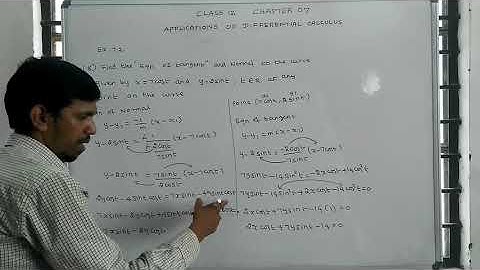 CLASS 12 CHAPTER 07
APPLICATIONS OF DIFFERENTIAL CALCULUS
EX. 7.2
Find the Eqn. of tangent and Normal to the curve
given by x=7cost and y=2sint, t∈R at any
point on the curve
of Normal
y-y₁ = -1/m (x-x₁)
y-2sint = (x-7cost)
y-2sint = 7sint/2cost (x-7cost)
2ycost-4sintcost=7xsint-49sintcost
7xsint-2ycost+4sintcost
7xsint-2ycost
Point (7cost, 2sint)
Eqn of tangent
y-y₁=m(x-x₁)
y-2sint = -2cost/7sint (x-7cost)
7ysint-14sin²t=-2xcost+14cos²t
7ysint-14sin²t+2xcost-14cos²t=0
2xcost+7ysint-14(1)=0
2xcost+7ysint-14=0